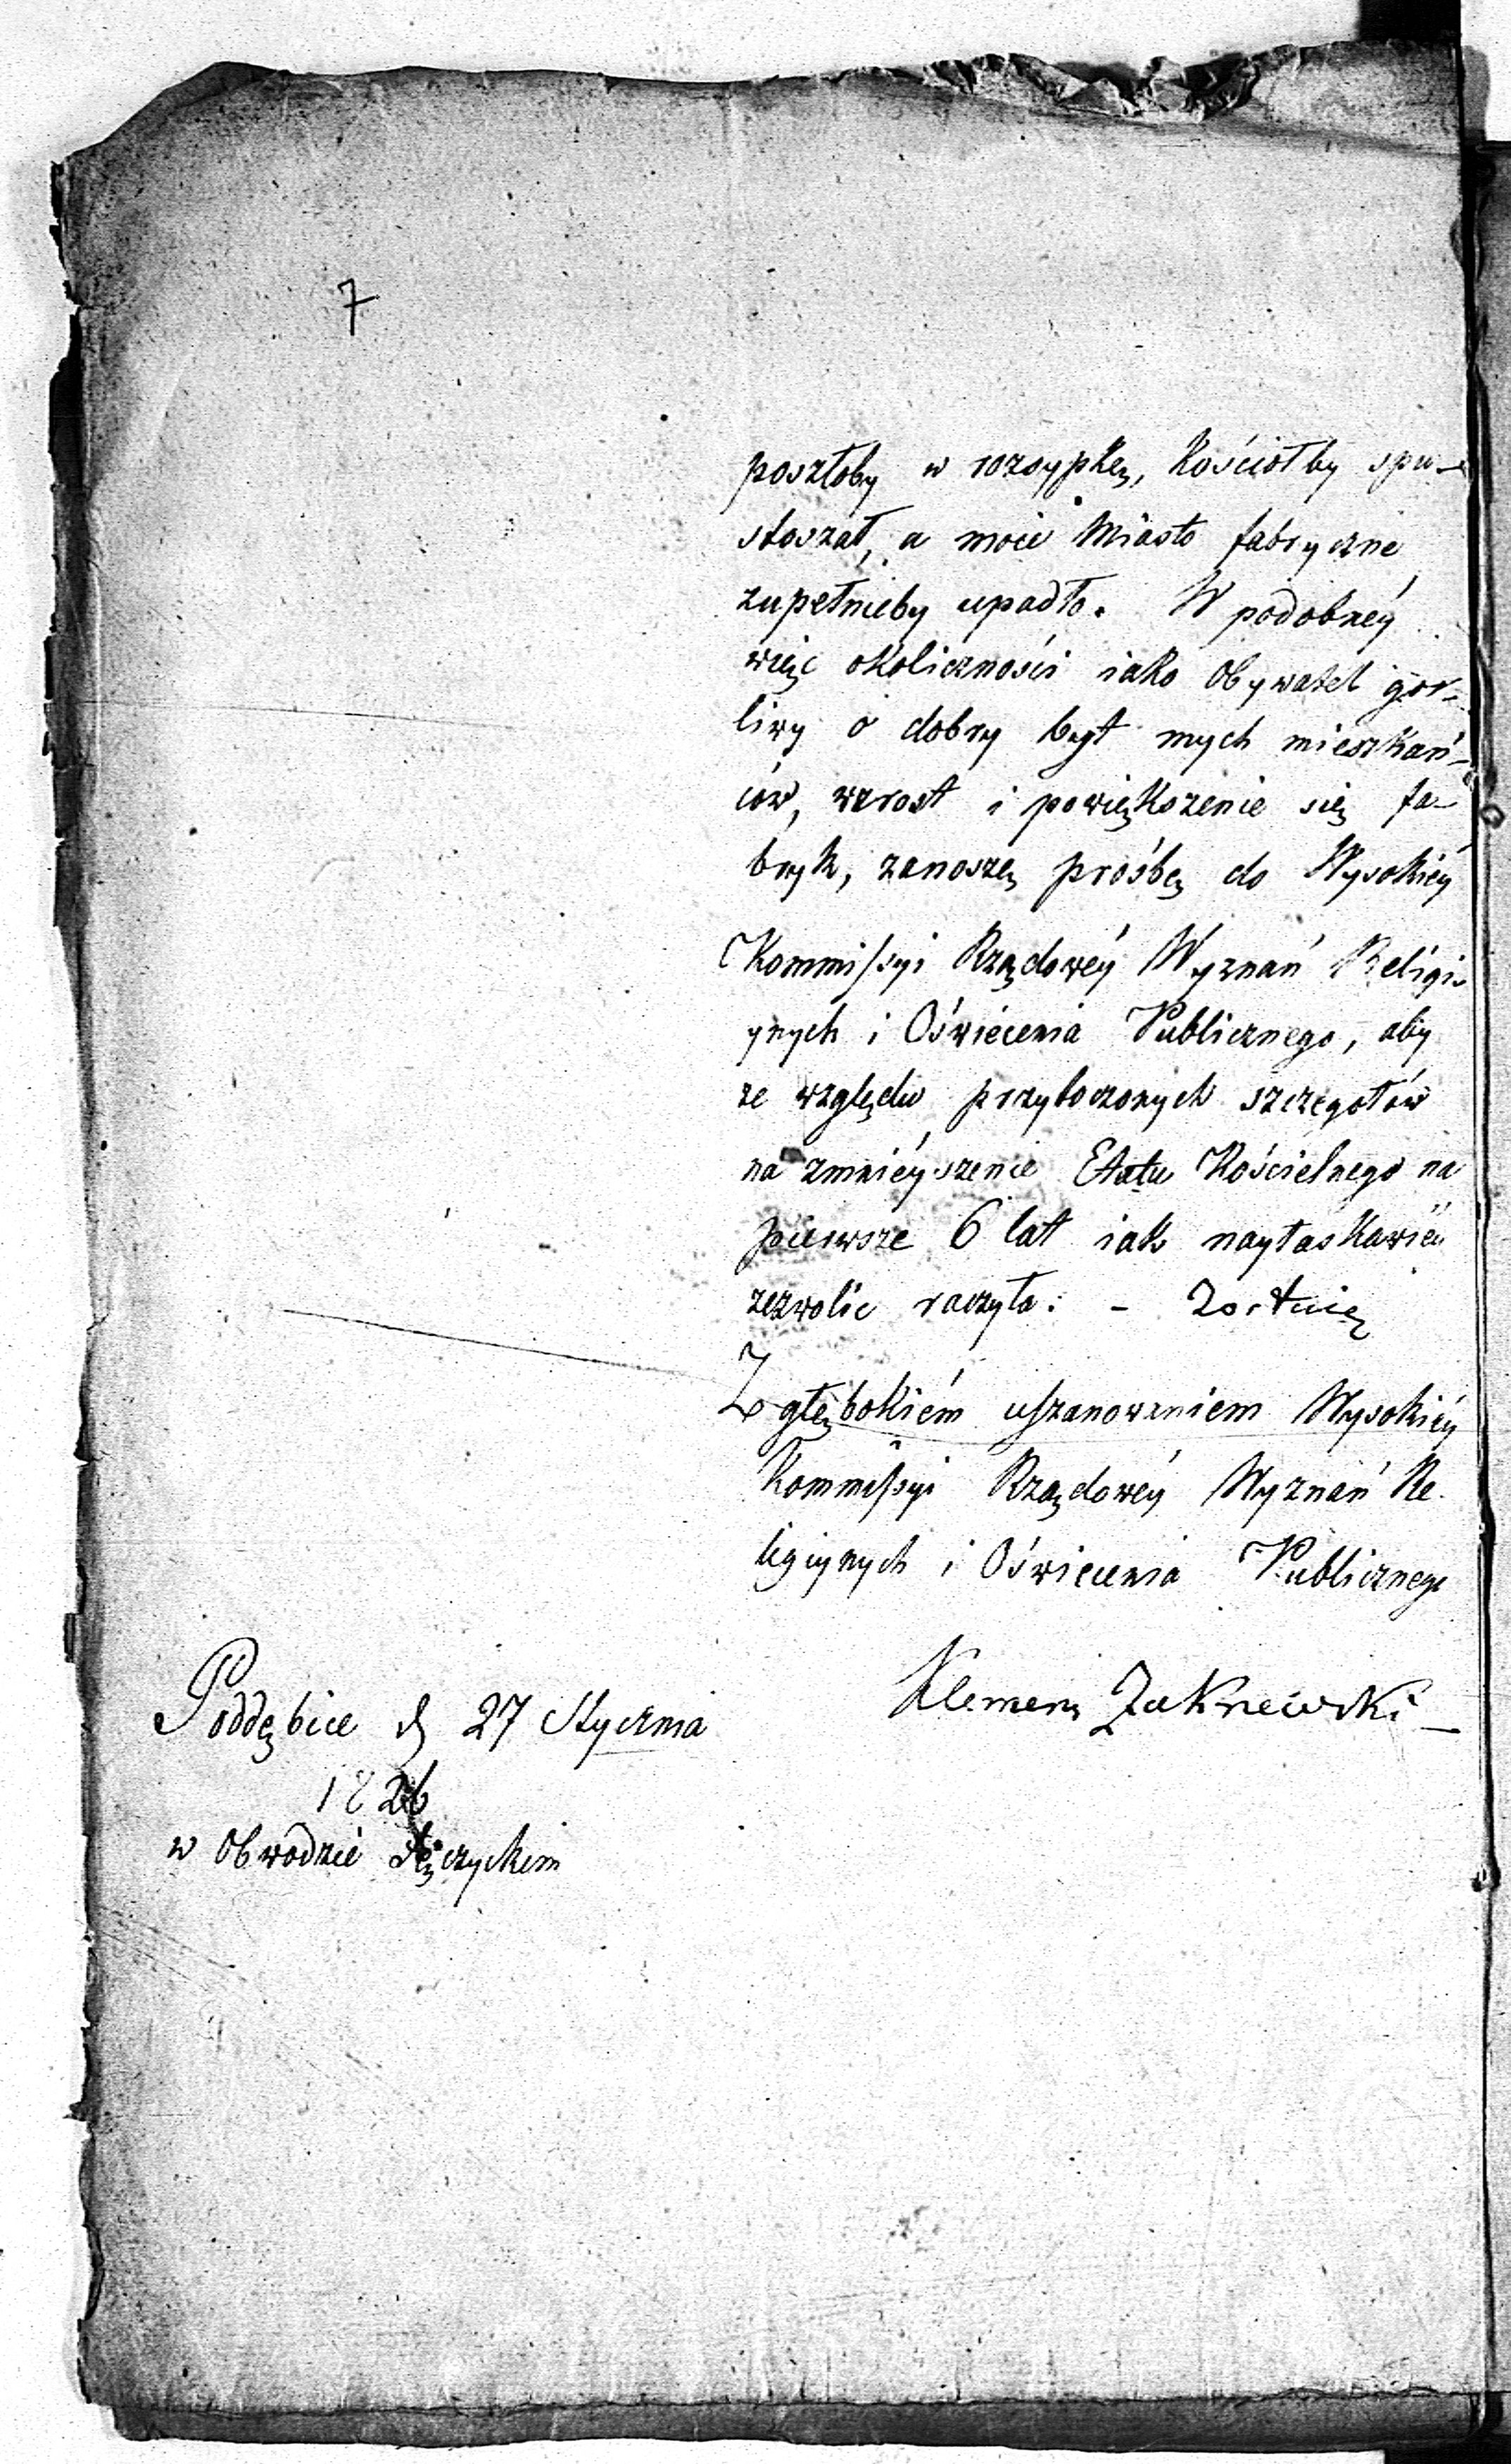 7
poszłoby w rozsypkę, Kościołby spu-
stoszał, a moie Miasto fabryczne
zupełnieby upadło. W podobnéy
więc okoliczności iako Obywatel gor-
liwy o dobry byt mych mieszkań-
ców, wzrost i powiększenie się fa-
bryk, zanoszę prośbę do Wysokiéy
Kommissyi Rządowéy Wyznań Religi-
ynych i Oświecenia Publicznego, aby
ze względu przytoczonych szczegołów
na zmniéyszenie Etatu Kościelnego na
pierwsze 6 lat iak nayłaskawiéy
zezwolić raczyła. – Zostaię
Z głębokiém uszanowaniem Wysokiéy
Kommissyi Rządowéy Wyznań Re-
ligiynych i Oświecenia Publicznego
Klemens Zakrzewski
Poddębice d 27 Stycznia
1826
w Obwodzie Łęczyckim